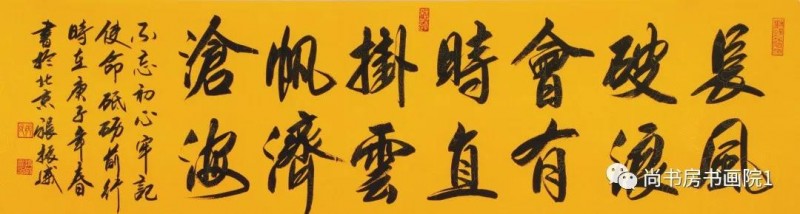 長風
破浪
會有
時直
掛雲
帆濟
滄海
不忘初心牢記
使命砥砺前行
時在庚子年春
書於北京張振
尚书房书画院1